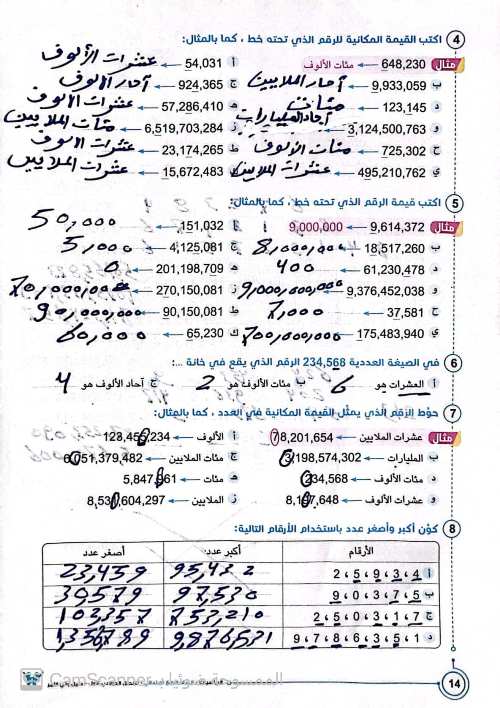 4 اكتب القيمة المكانية للرقم الذي تحته خط ، كما بالمثال:
مثال 648,230 ← مئات الألوف
أ 54,031 ← عشرات الألوف
ب 9,933,059 ← آحاد الملايين
ج 924,365 ← آحاد الألوف
د 123,145 ← مئات
ه 57,286,410 ← عشرات الألوف
و 3,124,500,763 ← آحاد المليارات
ز 6,519,703,284 ← مئات الملايين
ح 725,302 ← مئات الألوف
ط 23,174,265 ← عشرات الألوف
ي 495,210,762 ← عشرات الملايين
ك 15,672,483 ← عشرات الملايين
5 اكتب قيمة الرقم الذي تحته خط ، كما بالمثال:
مثال 9,614,372 ← 9,000,000
أ 151,032 ← 50,000
ب 18,517,260 ← 8,000,000
ج 4,125,081 ← 5,000
د 61,230,478 ← 400
ه 201,198,709 ← 0
و 9,376,452,038 ← 9,000,000,000
ز 270,150,081 ← 70,000,000
ح 37,581 ← 7,000
ط 90,150,081 ← 90,000,000
ي 175,483,940 ← 700,000,000
ك 65,230 ← 60,000
6 في الصيغة العددية 234,568 الرقم الذي يقع في خانة ...:
أ العشرات هو 6 ب مئات الألوف هو 2 ج آحاد الألوف هو 4
7 حوّط الرقم الذي يمثل القيمة المكانية في العدد، كما بالمثال:
مثال عشرات الملايين ← 78,201,654
أ الألوف ← 128,456,234
ب المليارات ← 3,198,574,302
ج مئات الملايين ← 6,051,379,482
د مئات الألوف ← 234,568
ه مئات ← 5,847,961
و عشرات الألوف ← 8,107,648
ز الملايين ← 8,530,604,297
8 كوّن أكبر وأصغر عدد باستخدام الأرقام التالية:
الأرقام أكبر عدد أصغر عدد
أ 4 ، 3 ، 9 ، 5 ، 2 95,432 23,459
ب 5 ، 7 ، 3 ، 0 ، 9 97,530 30,579
ج 7 ، 1 ، 3 ، 0 ، 5 ، 2 753,210 103,357
د 1 ، 5 ، 3 ، 6 ، 8 ، 7 ، 9 9,876,531 1,356,789
14
الموسوعة ضوئيا بـ CamScanner